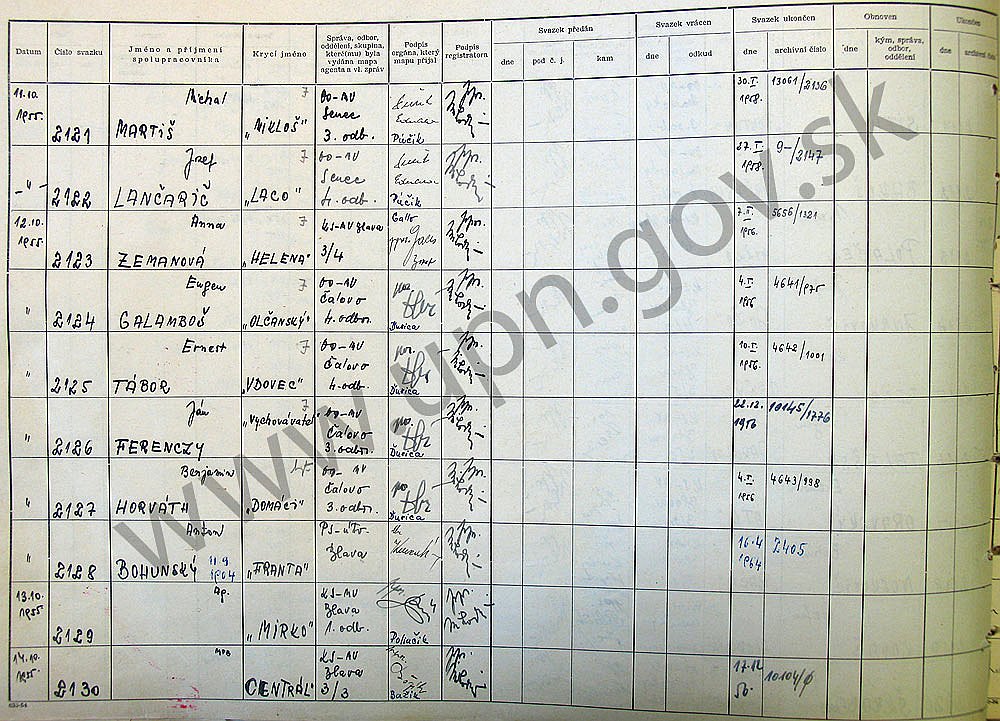 Datum
Číslo svazku
Jméno a příjmení spolupracovníka
Krycí jméno
Správa, odbor, oddělení, skupina, kterému) byla vydána mapa agenta a vl. zpráv
Podpis orgána, který mapu přijal
Podpis registrátora
Svazek předán
dne
pod č. j.
kam
Svazek vrácen
dne
odkud
Svazek ukončen
dne
archivní číslo
Obnoven
dne
kým, správa, odbor, oddělení
Ukončen
dne
archivní číslo
11.10. 1955.
2121
Michal
MARTIŠ
7
„MIKLOŠ"
OO-AV
Senec
3. odb.
Púčik
30.I. 1958.
13061/2136
-"-
2122
Jozef
LANČARIČ
7
„LACO"
OO-AV
Senec
4. odb.
Púčik
27.I. 1958.
9-/2147
12.10. 1955.
2123
Anna
ZEMANOVÁ
7
„HELENA"
KS-AV Blava
3/4
Gallo
7.I. 1956.
5656/1321
"
2124
Eugen
GALAMBOŠ
7
„OLČANSKÝ"
OO-AV
Čalovo
4. odbor.
Ďurica
4.I. 1956
4641/975
"
2125
Ernest
TÁBOR
7
„VDOVEC"
OO-AV
Čalovo
4. odb.
Ďurica
10.I. 1956.
4642/1001
"
2126
Ján
FERENCZY
7
„Vychovávateľ"
OO-AV
Čalovo
3. odbor.
Ďurica
22.12. 1956
10145/1776
"
2127
Benjamin
HORVÁTH
„DOMÁCI"
OO-AV
Čalovo
3. odbor.
Ďurica
4.I. 1956
4643/998
"
2128
Anton
BOHUNSKÝ
11 9 1964
„FRANTA"
Blava
16.4 1964
2405
13.10. 1955.
2129
Ag.
„MIRKO"
KS-AV
Blava
1. odb.
Poliačik
14.10. 1955.
2130
MPB
„CENTRÁL"
KS-AV
Blava
3/3
Bažík
17.12 56.
10104/φ
635-54
www.upn.gov.sk